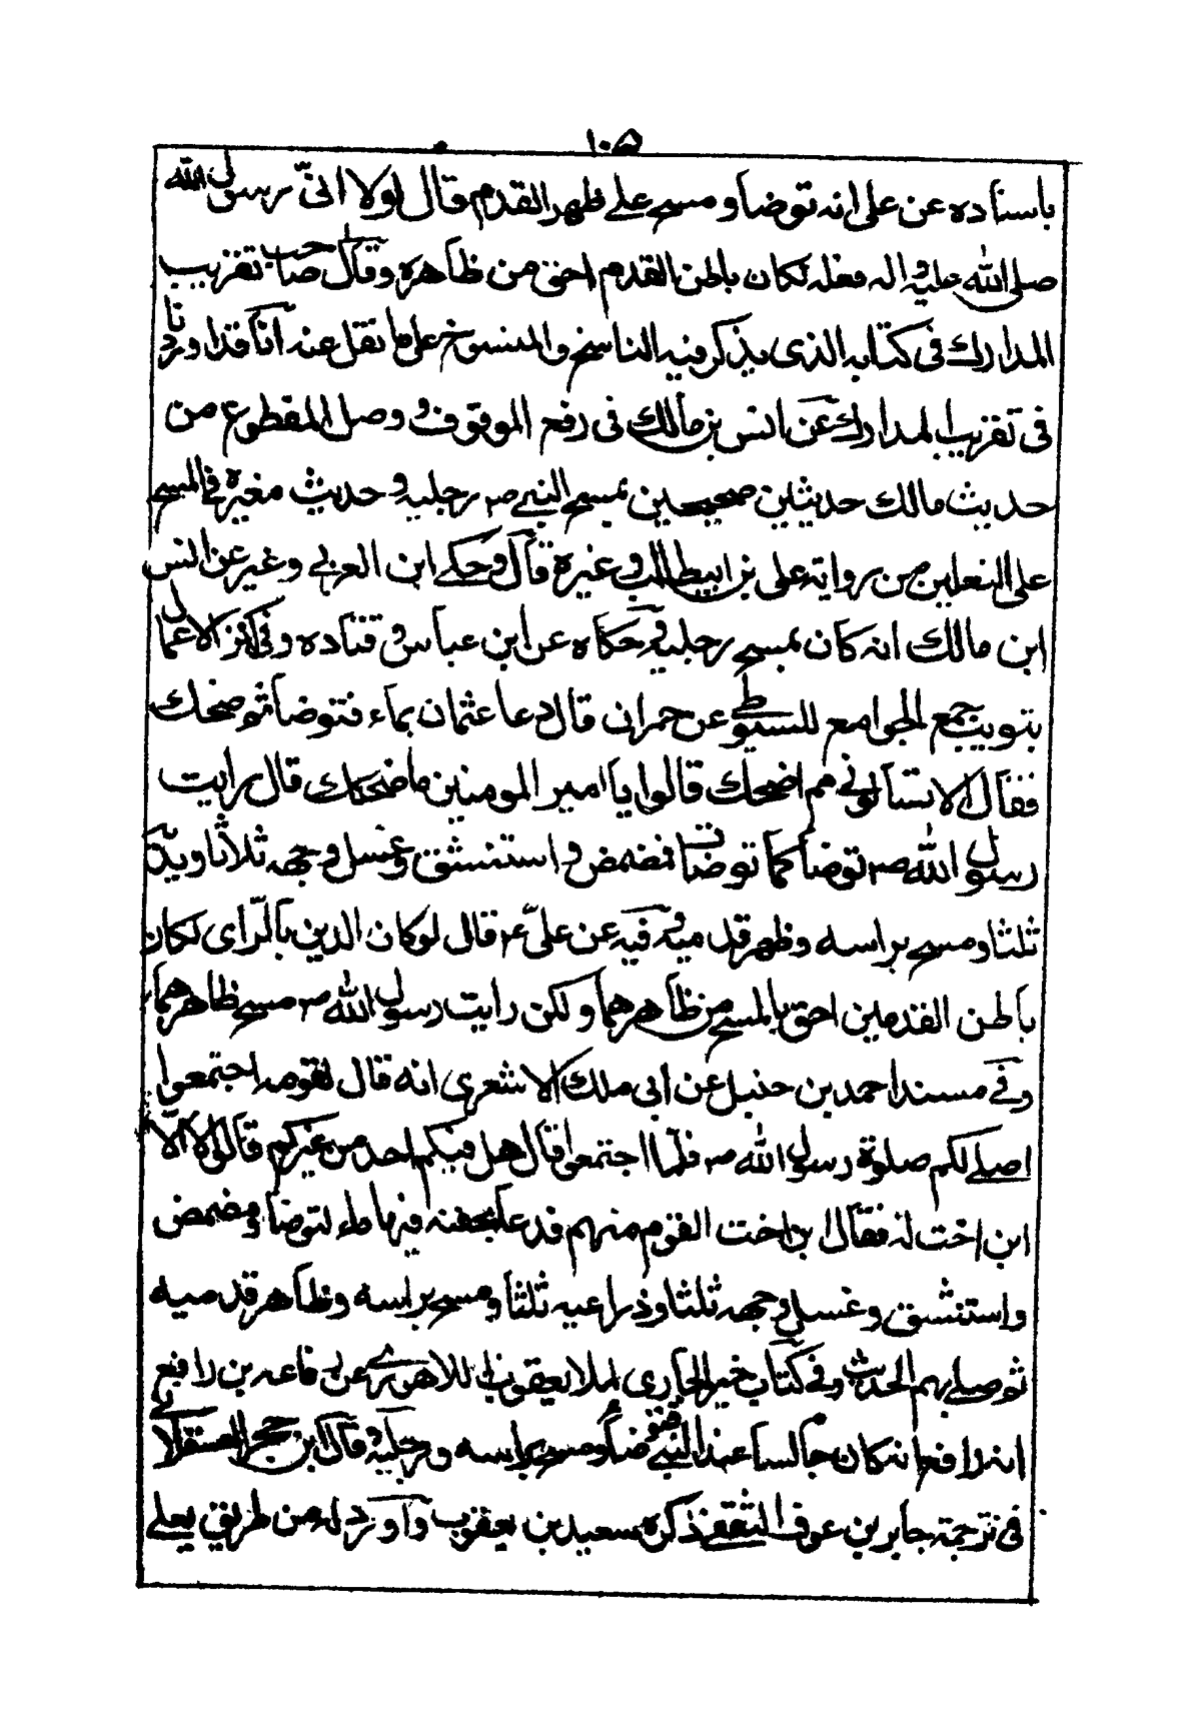 ١٠٥
باسناده عن على انه توضا و مسح على ظهر القدم قال لولا انى رسول الله
صلى الله عليه و اله فعله لكان باطن القدم احق من ظاهره وقال صاحب تقريب
المدارك فى كتابه الذى يذكر فيه الناسخ والمنسوخ على ما نقل عنه انا قد اوردنا
فى تقريب المدارك عن انس بن مالك فى رفع الموقوف و وصل المقطوع من
حديث مالك حديثين صحيحين بمسح النبى ص رجليه و حديث مغيرة فى المسح
على النعلين من رواية على بن ابيطالب و غيره قال و حكى ابن العربى و غيره عن انس
ابن مالك انه كان يمسح رجليه و حكاه عن ابن عباس و قتاده و فى كنز الاعمال
بتويب جمع الجوامع للسيوطى عن حمران قال دعا عثمان بماء فتوضا ثم ضحك
فقال الا تسالونى مم اضحك قالوا يا امير المومنين ما ضحكك قال رايت
رسول الله ص توضا كما توضات فمضمض و استنشق و غسل وجهه ثلاثا ويديه
ثلثا ومسح براسه وظهر قدميه و فيه عن على ع قال لو كان الدين بالراى لكان
باطن القدمين احق بالمسح من ظاهرهما ولكن رايت رسول الله ص مسح ظاهرهما
وفى مسند احمد بن حنبل عن ابى ملك الاشعرى انه قال لقومه اجتمعوا
اصلى لكم صلوة رسول الله ص فلما اجتمعوا قال هل فيكم احد من غيركم قالوا لا الا
ابن اخت لنا فقال ابن اخت القوم منهم فدعا بجفنة فيها ماء لتوضا ومضمض
واستنشق وغسل وجهه ثلثا وذراعيه ثلثا ومسح براسه وظاهر قدميه
ثم صلى بهم الحديث وفى كتاب خير الجارى لملا يعقوب اللاهورى عن رفاعه بن رافع
انه رافع انه كان جالسا عند النبى فتوضا و مسح براسه ورجليه و قال ابن حجر العسقلانى
فى ترجمة جابر بن عوف الثقفى ذكره سعيد بن يعقوب و اورد له من طريق يعلى